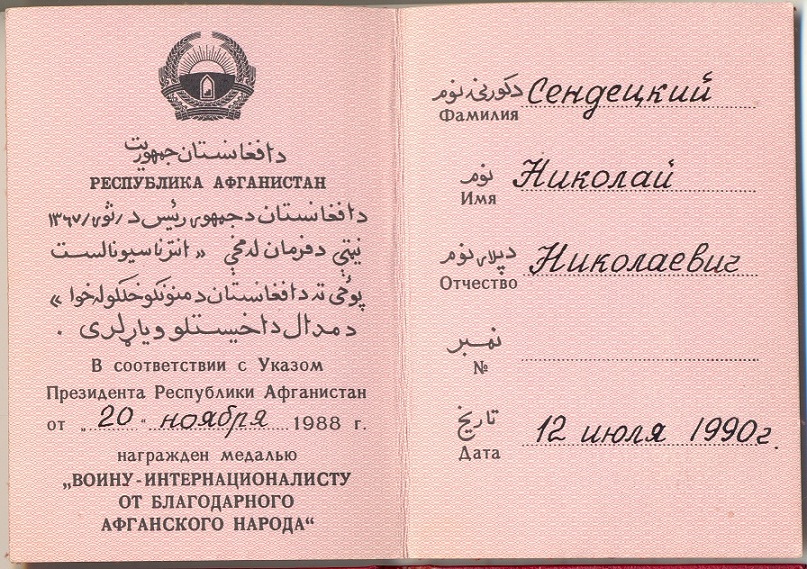 دافغانستان جمهوریت
РЕСПУБЛИКА АФГАНИСТАН
دافغانستان دجمهوری رئیس د /ثور/ ١٣٦٧
نیټې دفرمان له مخې «انترناسیونالست
پوځي ته دافغانستان دمننکوخلکوله خوا»
دمدال داخیستلو ویاړلری .
В соответствии с Указом
Президента Республики Афганистан
от „ 20 “ ноября 1988 г.
награжден медалью
„ВОИНУ-ИНТЕРНАЦИОНАЛИСТУ
ОТ БЛАГОДАРНОГО
АФГАНСКОГО НАРОДА“
دکورنۍ نوم Сендецкий
Фамилия
نوم Николай
Имя
دپلار نوم Николаевич
Отчество
نمبر
№
تاریخ 12 июля 1990г.
Дата